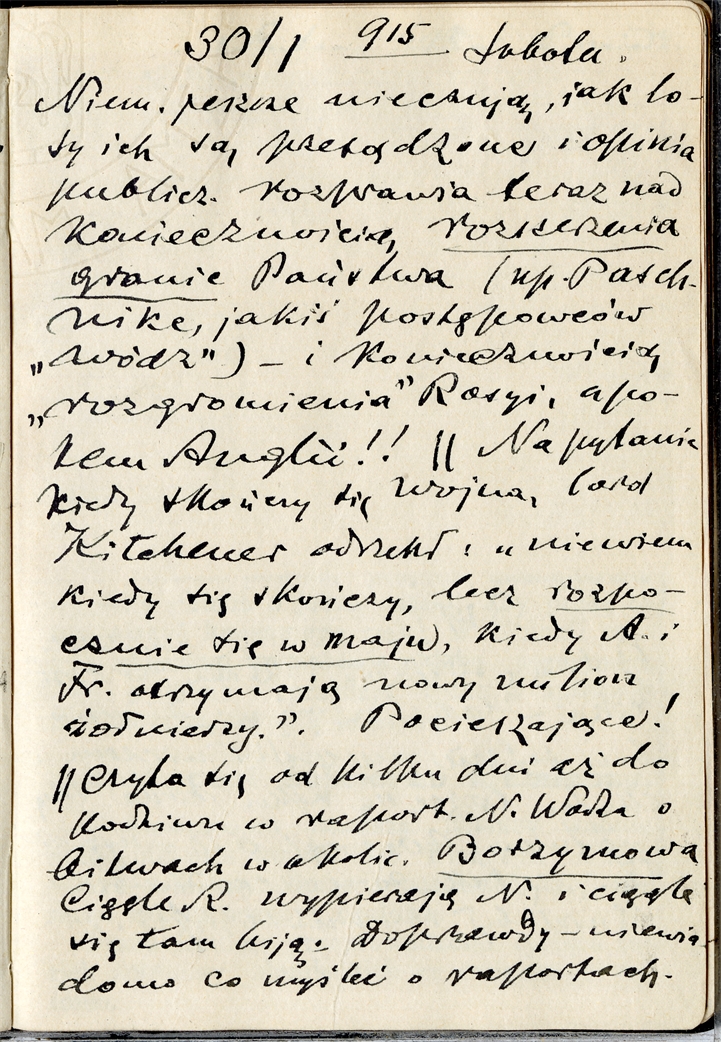 30/1 915 Sobota.
Niem. jeszcze nieczują, jak lo-
sy ich są przesądzone i opinia
publicz. rozprawia teraz nad
Koniecznością rozszerzenia
granic Państwa (np. Pasch-
nike, jakiś postępowców
„wódz”) – i Koniecznością
„rozgromienia” Rosyi, a po-
tem Anglii!! || Na pytanie
kiedy skończy się wojna, lord
Kitchener odrzekł: „niewiem
kiedy się skończy, lecz rozpo-
cznie się w maju, kiedy A. i
Fr. otrzymają nowy milion
żołnierzy.”. Pocieszające!
|| Czyta się od kilku dni aż do
w raport. N. Wodza o
bitwach w okolic. Borzymowa
Ciągle R. wypierają N. i ciągle
się tam biją. Doprawdy – niewia-
domo co myśleć o raportach.